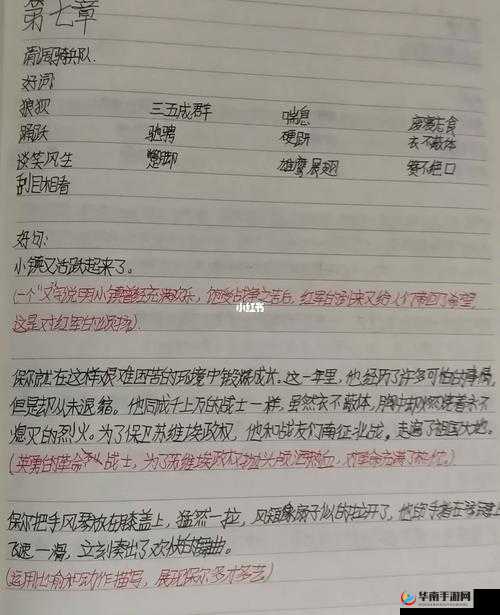 第七章
清国骑兵队.
好词
狼狈 三五成群 喘息 废寝忘食
踊跃 驰骋 硬趼 衣不蔽体
谈笑风生 蹩脚 雄鹰展翅 赞不绝口
刮目相看
好句:
小镇又活跃起来了。
(一个"又"字说明小镇曾经充满欢乐,饱受战争之苦后,红军的到来又给人们带回了希望
这是对红军的颂扬)
小红书
保尔就在这样艰难困苦的环境中锻炼成长。这一年里,他经历了许多可怕的事情,
但是却从未退缩。他同成千上万的战士一样,虽然衣不蔽体,胸中却燃烧着永不
熄灭的烈火。为了保卫苏维埃政权,他和战友们南征北战。走遍了祖国大地。
(英勇的革命战士,为了苏维埃政权抛头颅洒热血,对革命充满了热忱。)
保尔把手风琴放在膝盖上,猛然一拉,风箱像扇子似的拉开了,他的手指在琴键上
飞速一滑,立刻奏出了欢快的舞曲。
(运用比喻和动作描写,展现保尔多才多艺)
华南手游网